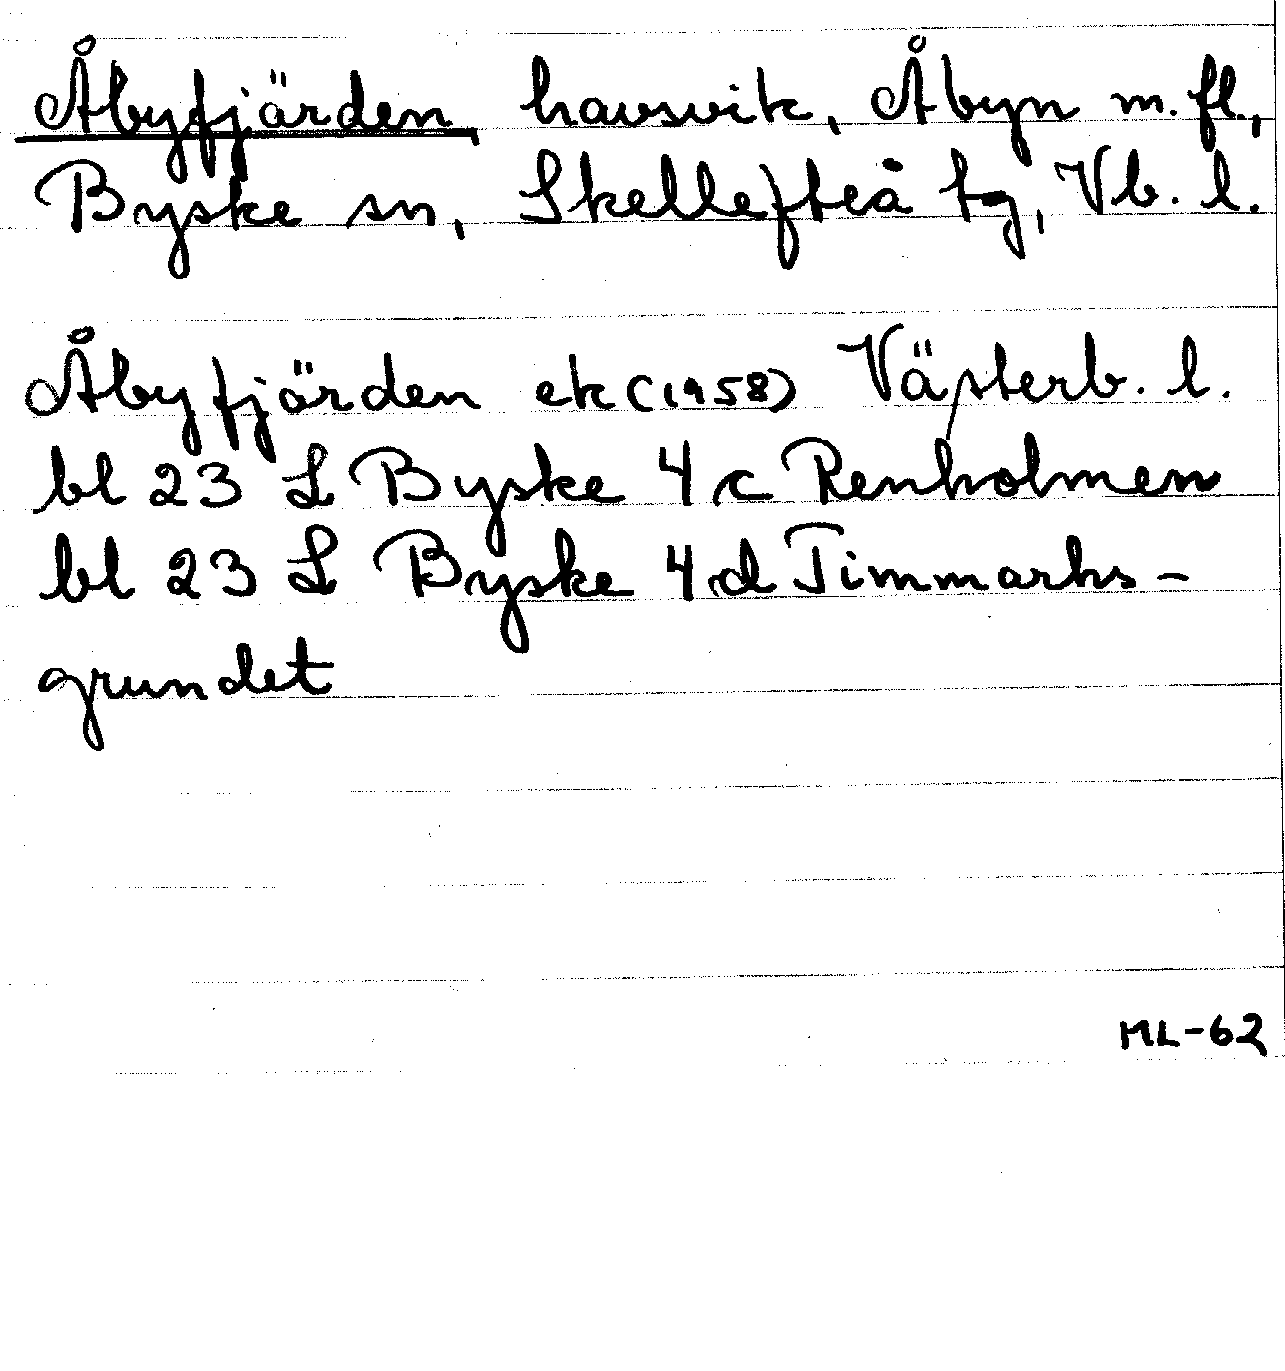 Åbyfjärden, havsvik, Åbyn m. fl.,
Byske sn, Skellefteå tg, Vb. l.
Åbyfjärden ek (1958) Västerb. l.
bl 23 L Byske 4 c Renholmen
bl 23 L Byske 4 d Timmarks-
grundet
ML-62